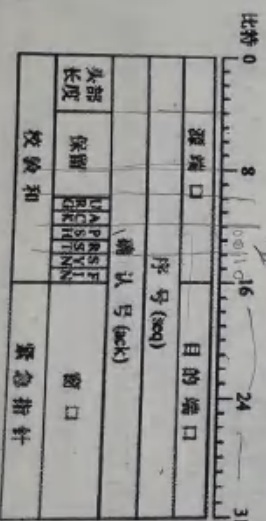 比特 0 8 16 24 31
源端口 目的端口
序号(seq)
确认号(ack)
头部长度 保留 URG ACK PSH RST SYN FIN 窗口
校验和 紧急指针